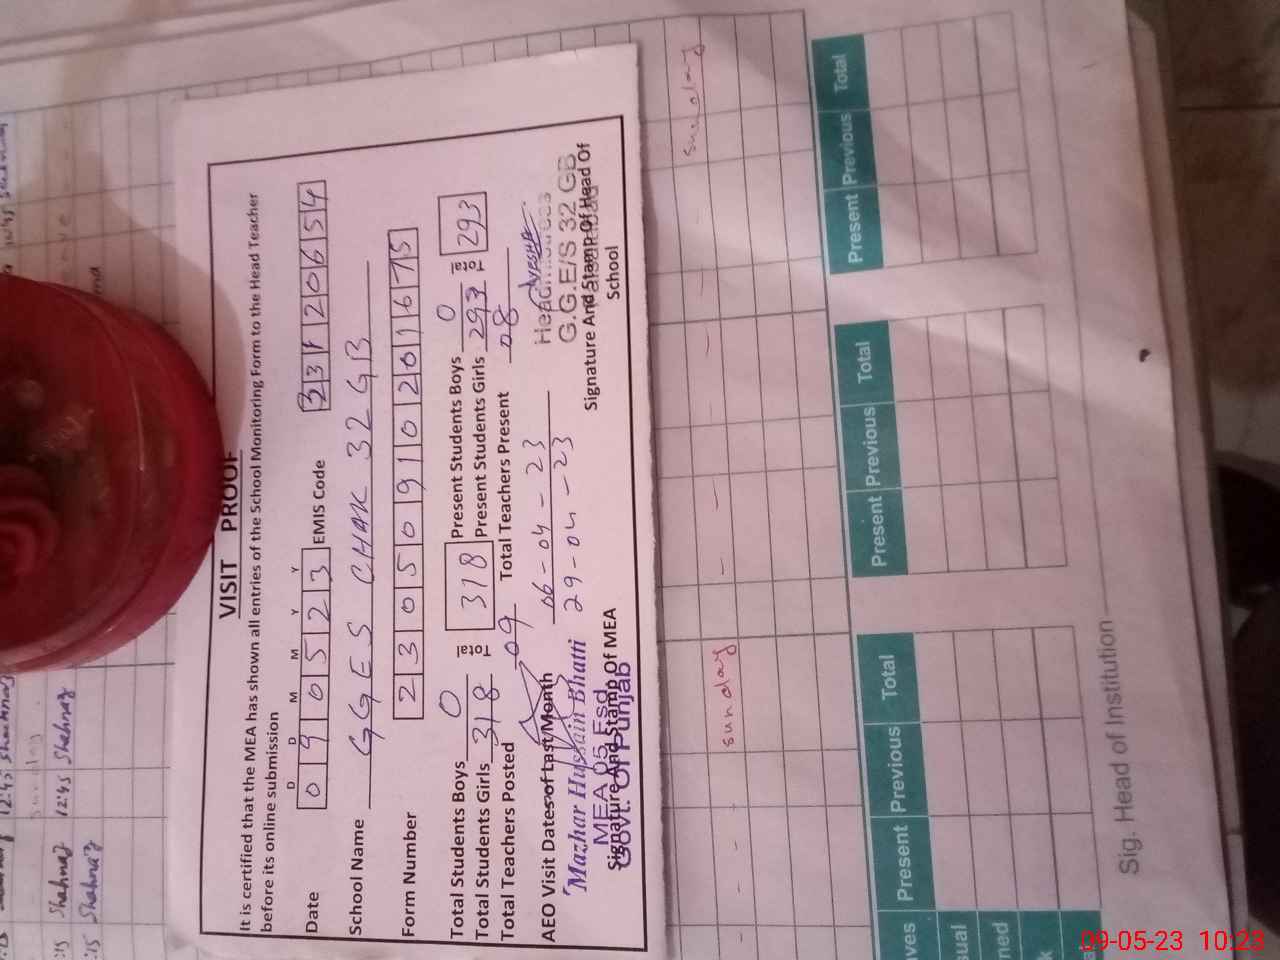 VISIT PROOF
It is certified that the MEA has shown all entries of the School Monitoring Form to the Head Teacher
before its online submission
D D M M Y Y
Date 0 9 0 5 2 3 EMIS Code 3 3 1 2 0 6 5 4
School Name GGES CHAK 32 GB
Form Number 2 3 0 5 0 9 1 0 2 0 1 6 7 5
Total Students Boys 0 Total 318 Present Students Boys 0 293
Total Students Girls 318 Present Students Girls 293
Total Teachers Posted 09 Total Teachers Present 08
AEO Visit Dates of Last Month 06-04-23
29-04-23
Mazhar Hussain Bhatti
MEA 05 Fsd
Signature And Stamp Of MEA
Govt. Of Punjab
AYESHA
Headmistress
G.G.E/S 32 GB
Faisalabad
Signature And Stamp Of Head Of
School
:15 Shahnaz 12:45 Shahnaz
:15 Shahnaz
sunday
sunday
Present Previous Total
Present Previous Total
Present Previous Total
Sig. Head of Institution
09-05-23 10:23